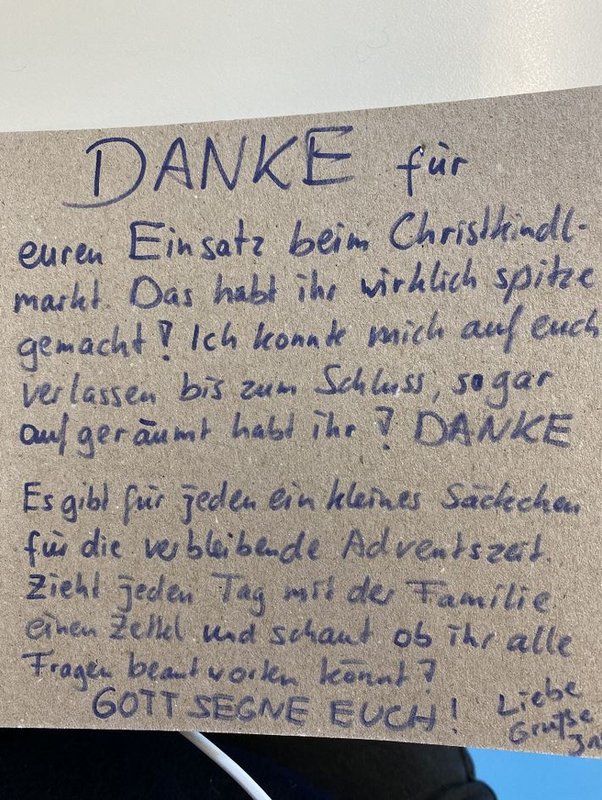 DANKE für
euren Einsatz beim Christkindl-
markt. Das habt ihr wirklich spitze
gemacht! Ich konnte mich auf euch
verlassen bis zum Schluss, sogar
aufgeräumt habt ihr! DANKE
Es gibt für jeden ein kleines Säckchen
für die verbleibende Adventszeit.
Zieht jeden Tag mit der Familie
einen Zettel und schaut ob ihr alle
Fragen beantworten könnt?
GOTT SEGNE EUCH!
Liebe
Grüße